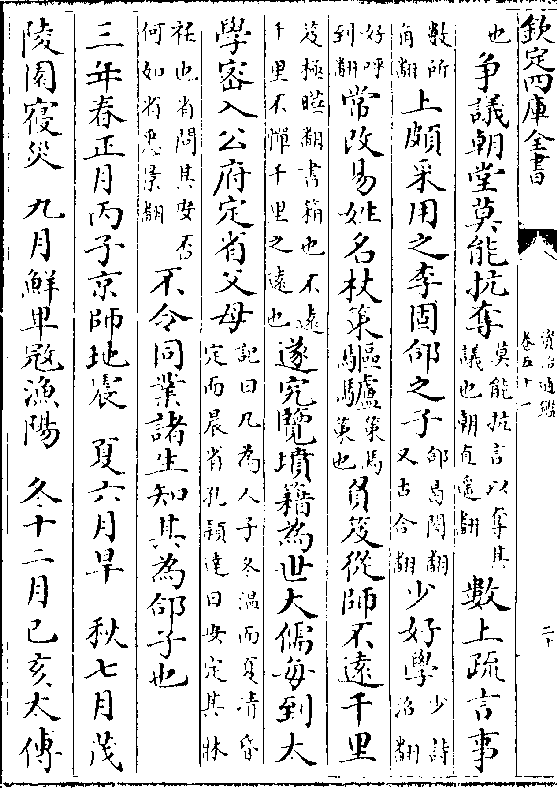 欽定四庫全書
資治通鑑
卷五十一
二十
也爭議朝堂莫能抗奪莫能抗言以奪其議也朝直遙翻數上疏言事
數所角翻上頗采用之李固郃之子郃曷閤翻又古合翻少好學少詩沼翻
好呼到翻常改易姓名杖策驅驢策馬驅驢策也負笈從師不遠千里
笈極曄翻書箱也不遠千里不憚千里之遠也遂究覽墳籍為世大儒每到太
學密入公府定省父母記曰凡為人子冬溫而夏凊昏定而晨省孔穎達曰安定其牀
衽也省問其安否何如省悉景翻不令同業諸生知其為郃子也
三年春正月丙子京師地震　夏六月旱　秋七月茂
陵園寢災　九月鮮卑寇漁陽　冬十二月己亥太傅